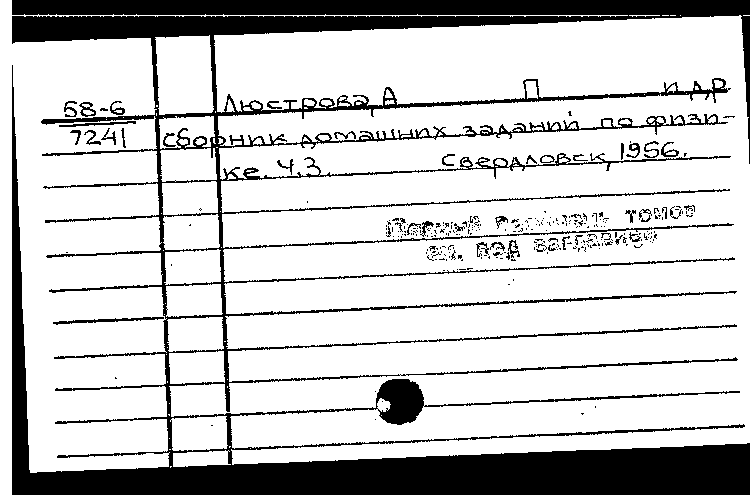 58-6
7241
Люстрова, А П и др
Сборник домашних заданий по физи-
ке. Ч.3. Свердловск, 1956.
Полный перечень томов
см. под заглавием